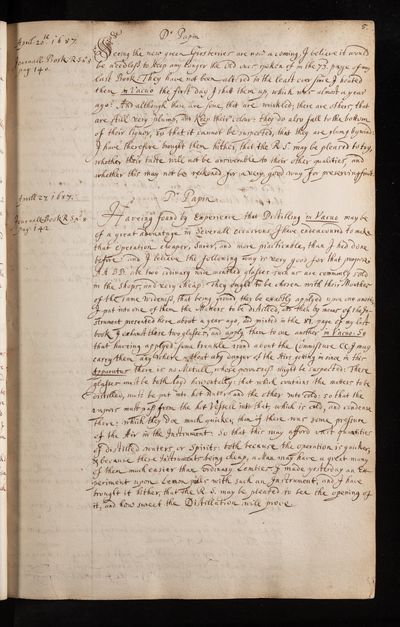 5.
Dr Papin
April 20th 1687.
Journall Book R.S: 8
pag 140.
Seeing the new green Goosberries are now a coming, I believe it would
be needless to keep any longer the old ones spoken of in the 73. page of my
last Book. They have not been altered in the least ever since I boated
them in Vacuo the first day I shut them up, which was almost a year
ago: And although there are some, that are wrinkled; there are others, that
are still very plump, and keep their colour: they do also fall to the bottom
of their liquor, so that it cannot be suspected, that they are
I have therefore brought them hither, that the R.S. may be pleased to try,
whether their taste will not be answerable to their other qualities, and
whether this may not be reckoned for a very good way for preserving fruit.
Aprill 27 1687.
Dr Papin
Journall Book R.S: 8
pag: 142
Having found by Experience that Distilling in Vacuo may be
of a great advantage in severall occasions, I have endeavoured to make
that Operation cheaper, surer, and more practicable, than I had done
before: and I believe the following way is very good for that purpose.
AA BB are two ordinary wide mouthed glasses such as are commonly sold
in the Shops, and very cheap. They ought to be chosen with their Mouthes
of the same wideness, that being ground they be exactly applyed upon one another.
I put into one of them the Matters to be distilled, and then by means of the In-
strument presented here about a year ago, and printed in the 81. page of my last
book I exhaust those two glasses, and apply them to one another in Vacuo. So
that having applyed some round about the Commissure CC I may
carry them any where without any danger of the Air getting in since in this
Apparatus there is no Mettall, whose porousness might be suspected: These
glasses must be both layd horizontally: that which contains the matters to be
distilled, must be put into hot Water, and the other into cold: so that the
vapours must pass from the hot Vessell into that, which is cold, and condense
there: which they doe much quicker, than if there was some pressure
of the Air in the Instrument. So that this may afford great quantities
of distilled waters, or Spirits: both because the operation is quicker,
& because these Instruments being cheap, a Man may have a great many
of them much easier than ordinary I made yesterday an Ex-
periment upon Lemon-pills with such an Instrument, and I have
brought it hither, that the R.S. may be pleased to see the opening of
it, and how sweet the Distillation will prove